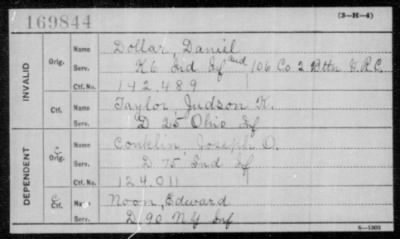 169844
(3-H-4)
INVALID
Orig. Name Dollar, Daniel
Serv. K 6 Ind Inf and 106 Co 2 Bttn V.R.C.
Ctf. No. 142,489
Ctf. Name Taylor, Judson K.
Serv. D 25 Ohio Inf
DEPENDENT
Orig. Name Conklin, Joseph O.
Serv. D 75 Ind Inf
Ctf. No. 124,011
Ctf. Name Noon, Edward
Serv. D 90 NY Inf